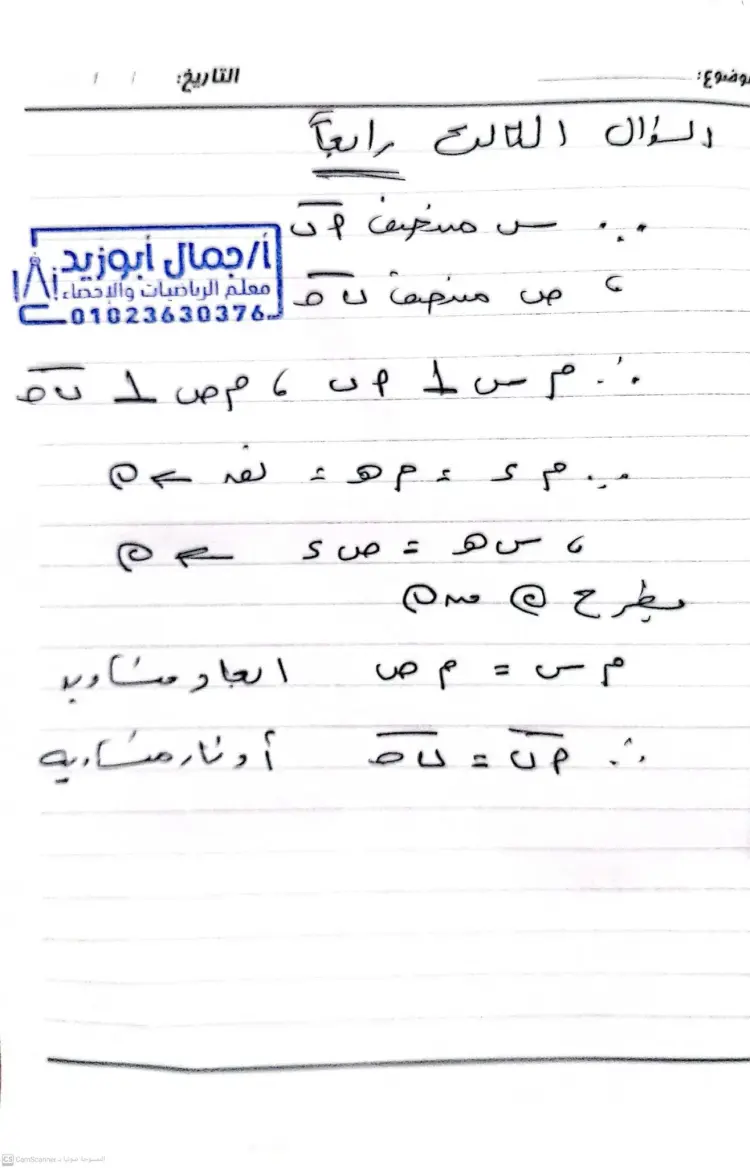 الموضوع: التاريخ: / /
السؤال الثالث رابعاً
∵ س منتصف أب
أ/جمال أبوزيد
معلم الرياضيات والإحصاء
01023630376
، ص منتصف ب حـ
∴ م س ⊥ أب ، م ص ⊥ ب حـ
∵ م ء = م هـ = نق ←
، س هـ = ص ء ←
بطرح من
م س = م ص ابعاد متساوية
∴ أب = ب حـ أوتار متساوية
CS CamScanner